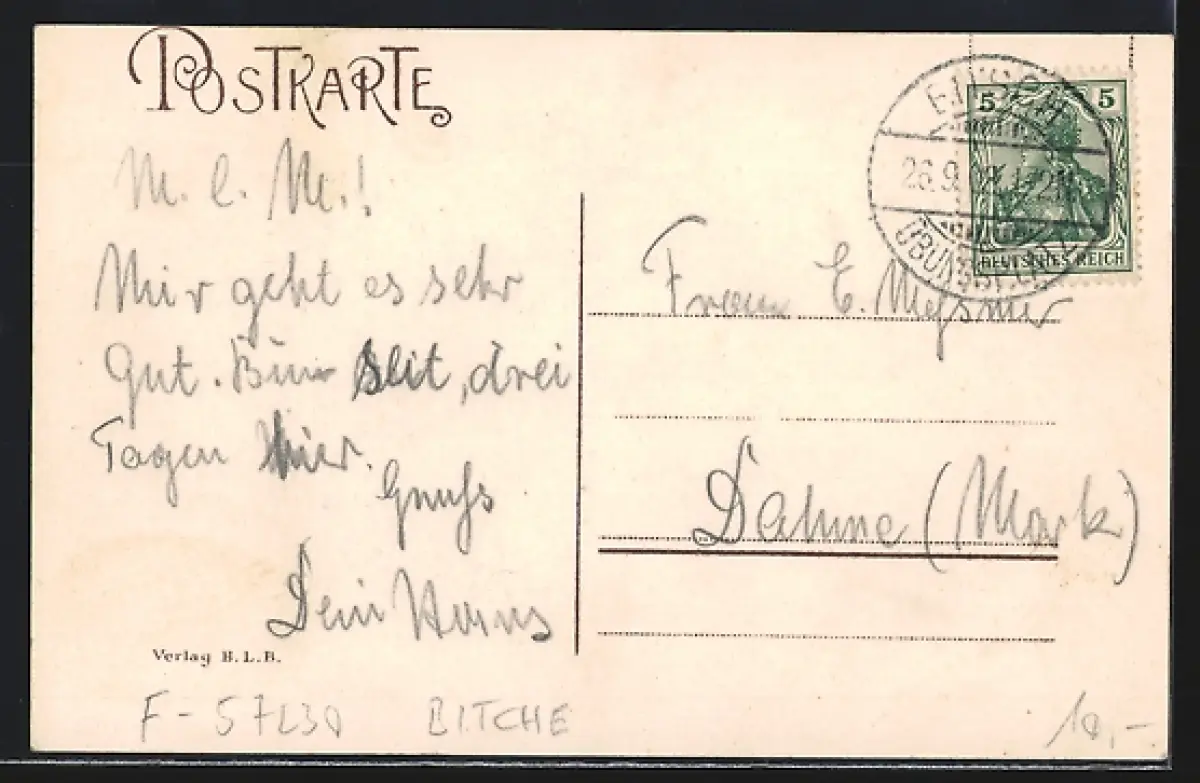 POSTKARTE
M. l. M.!
Mir geht es sehr
gut. Bin seit, drei
Tagen hier.
Gruss
Dein Hans
Verlag B.L.B.
F-57230 BITCHE
5 5
DEUTSCHES REICH
BITSCH
26.9.
ÜBUNGSPLATZ
Frau E. Messner
Dahme (Mark)
10,-